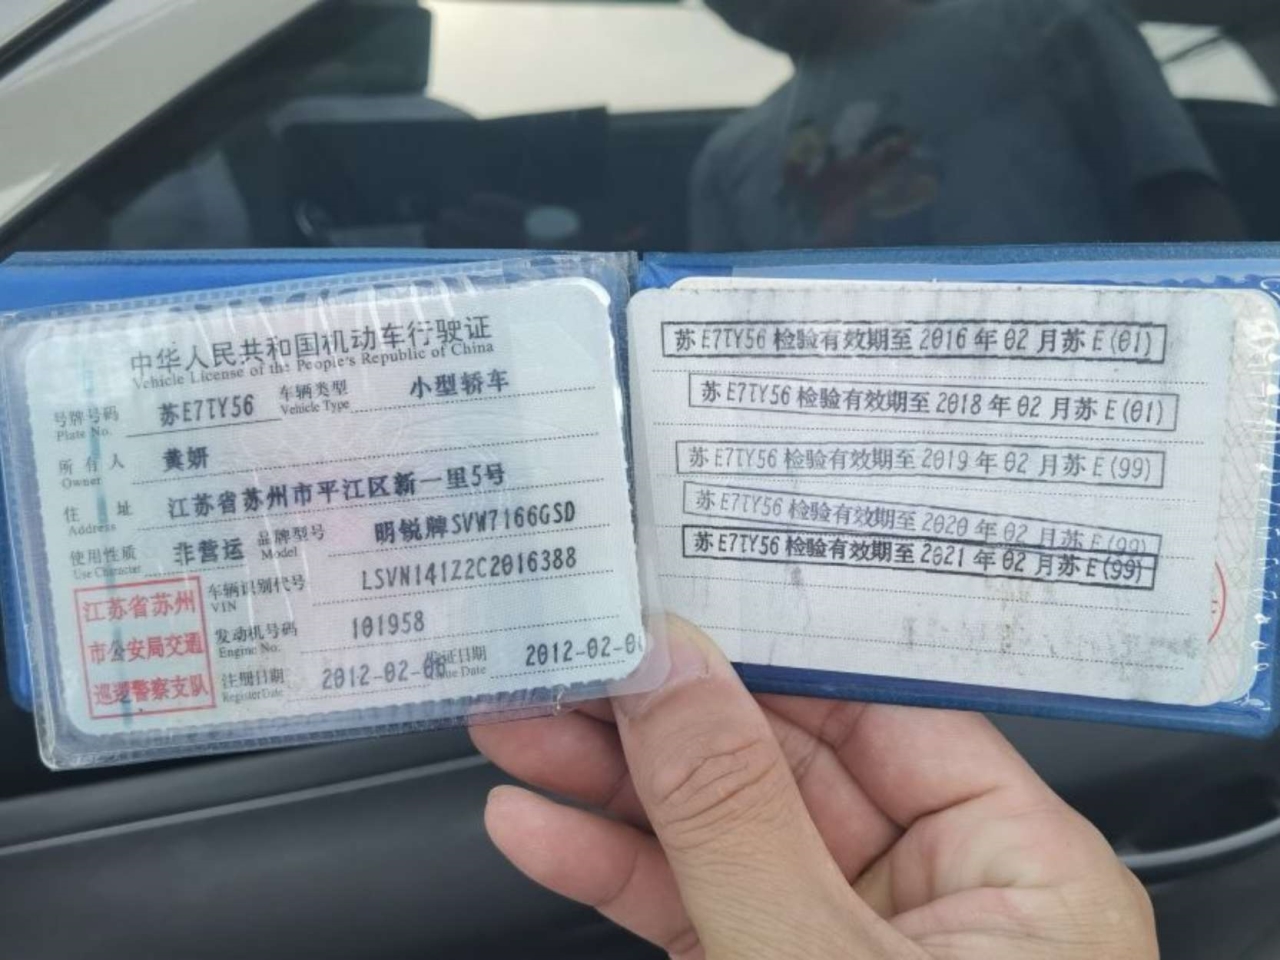 中华人民共和国机动车行驶证
Vehicle License of the People's Republic of China
号牌号码 苏E7TY56 车辆类型 小型轿车
Plate No. Vehicle Type
所有人 黄妍
Owner
住址 江苏省苏州市平江区新一里5号
Address
使用性质 非营运 品牌型号 明锐牌SVW7166GSD
Use Character Model
车辆识别代号 LSVN141Z2C2016388
VIN
发动机号码 101958
Engine No.
注册日期 2012-02-06 发证日期 2012-02-0
Register Date Issue Date
江苏省苏州
市公安局交通
巡逻警察支队
苏E7TY56检验有效期至2016年02月苏E(01)
苏E7TY56检验有效期至2018年02月苏E(01)
苏E7TY56检验有效期至2019年02月苏E(99)
苏E7TY56检验有效期至2020年02月苏E(99)
苏E7TY56检验有效期至2021年02月苏E(99)